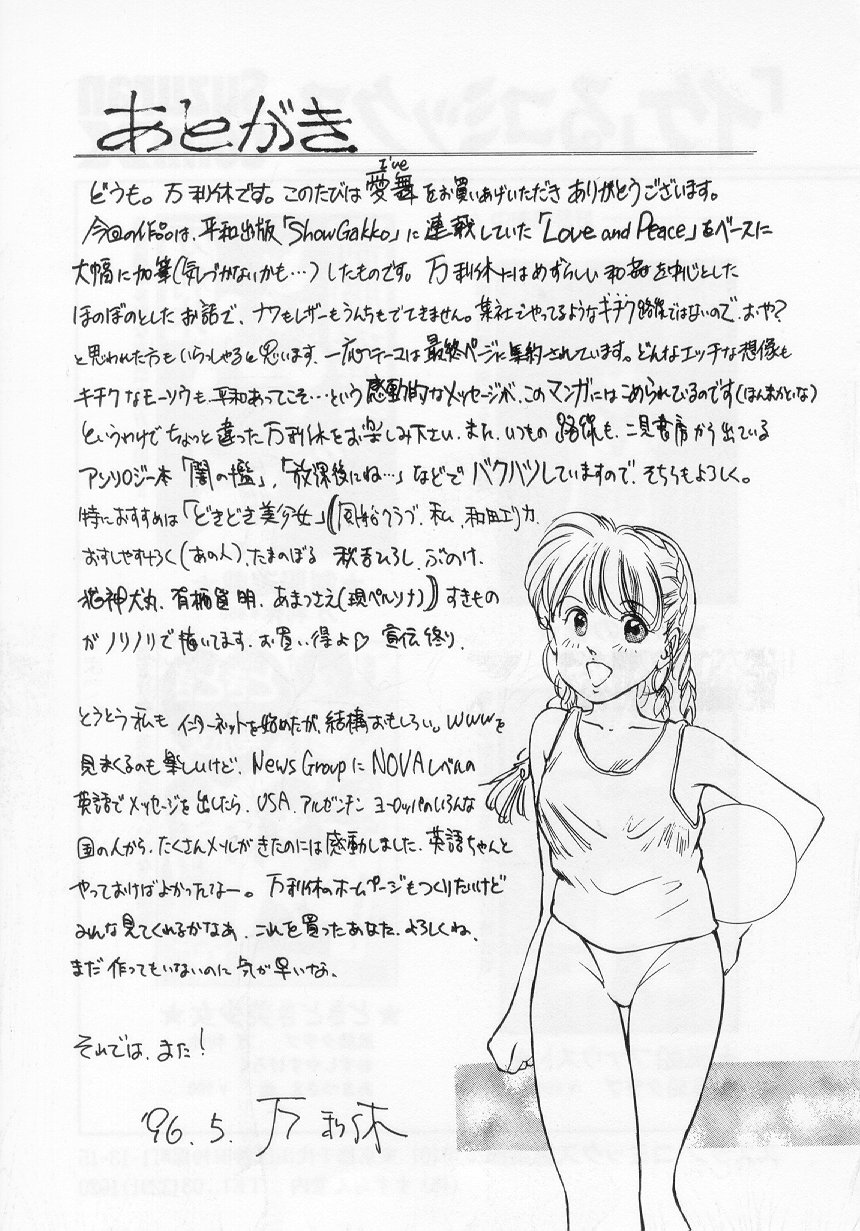 あとがき
I've
どうも。万利休です。このたびは愛舞をお買いあげいただき ありがとうございます。
今回の作品は、平和出版「Show Gakko」に連載していた「Love and Peace」をベースに
大幅に加筆(気づかないかも…)したものです。万利休にはめずらしい和姦を中心とした
ほのぼのとしたお話で、ナワもレザーもうんちもでてきません。某社でやってるようなキチク路線ではないので、おや?
と思われた方もいらっしゃると思います、一応テーマは最終ページに集約されています。どんなエッチな想像も
キチクなモーソウも、平和あってこそ…という感動的なメッセージが、このマンガにはこめられているのです(ほんまかいな)
というわけでちょっと違った万利休をお楽しみ下さい、また、いつもの路線も、二見書房から出ている
アンソロジー本「闇の檻」,「放課後にね…」などでバクハツしていますので、そちらもよろしく。
特におすすめは「どきどき美少女」(風船クラブ、私、和田エリカ、
おすしやすすろく(あの人)、たまのぼる 秋吉ひろし、ぶのけ、
犬神犬丸、有栖宣明、あまつさえ(現ペルソナ))すきもの
がノリノリで描いてます、お買い得よ♡ 宣伝終り、
とうとう私も インターネットを始めたが、結構おもしろい。WWWを
見まくるのも楽しいけど、News GroupにNOVAレベルの
英語でメッセージを出したら、USA、アルゼンチン ヨーロッパのいろんな
国の人から、たくさんメールがきたのには感動しました、英語ちゃんと
やっておけばよかったなー。万利休のホームページもつくりたいけど
みんな見てくれるかなあ、これを買ったあなた、よろしくね、
まだ作ってもいないのに気が早いな、
それでは、また!
'96.5. 万利休